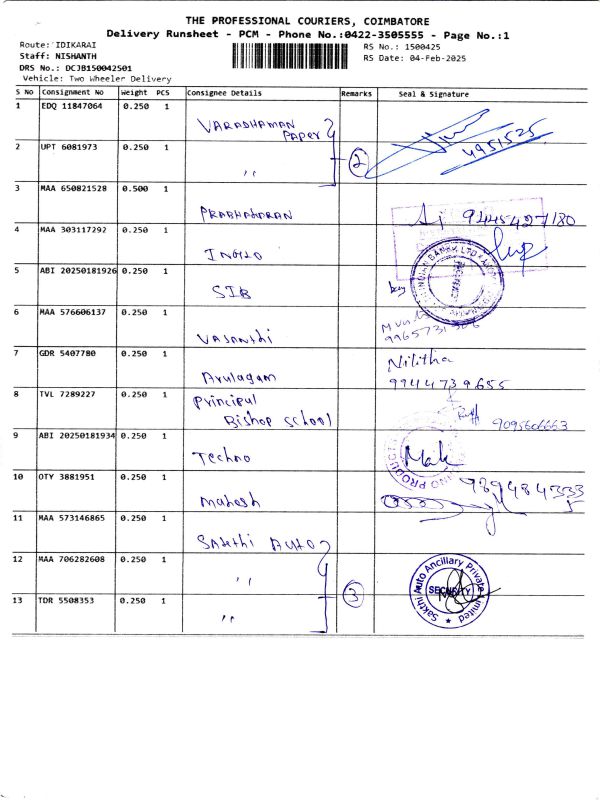 THE PROFESSIONAL COURIERS, COIMBATORE
Delivery Runsheet - PCM - Phone No.:0422-3505555 - Page No.:1
Route: IDIKARAI
RS No.: 1500425
Staff: NISHANTH
RS Date: 04-Feb-2025
DRS No.: DCJB150042501
Vehicle: Two Wheeler Delivery
S No Consignment No Weight PCS Consignee Details Remarks Seal & Signature
1 EDQ 11847064 0.250 1 VARADHAMAN PAPER
4951525
2 UPT 6081973 0.250 1 ,, 2
3 MAA 650821528 0.500 1 PRABHAHARAN 9445427180
4 MAA 303117292 0.250 1 INGIO
5 ABI 20250181926 0.250 1 SIB
6 MAA 576606137 0.250 1 Vasanthi
7 GDR 5407780 0.250 1 Arulagam Nilitha
9944739655
8 TVL 7289227 0.250 1 Principal
Bishop school 9095606663
9 ABI 20250181934 0.250 1 Techno
10 OTY 3881951 0.250 1 Mahesh
11 MAA 573146865 0.250 1 Sakthi Auto
12 MAA 706282608 0.250 1 ,, 3
Sakthi Auto Ancillary Private Limited
SECURITY
13 TDR 5508353 0.250 1 ,,